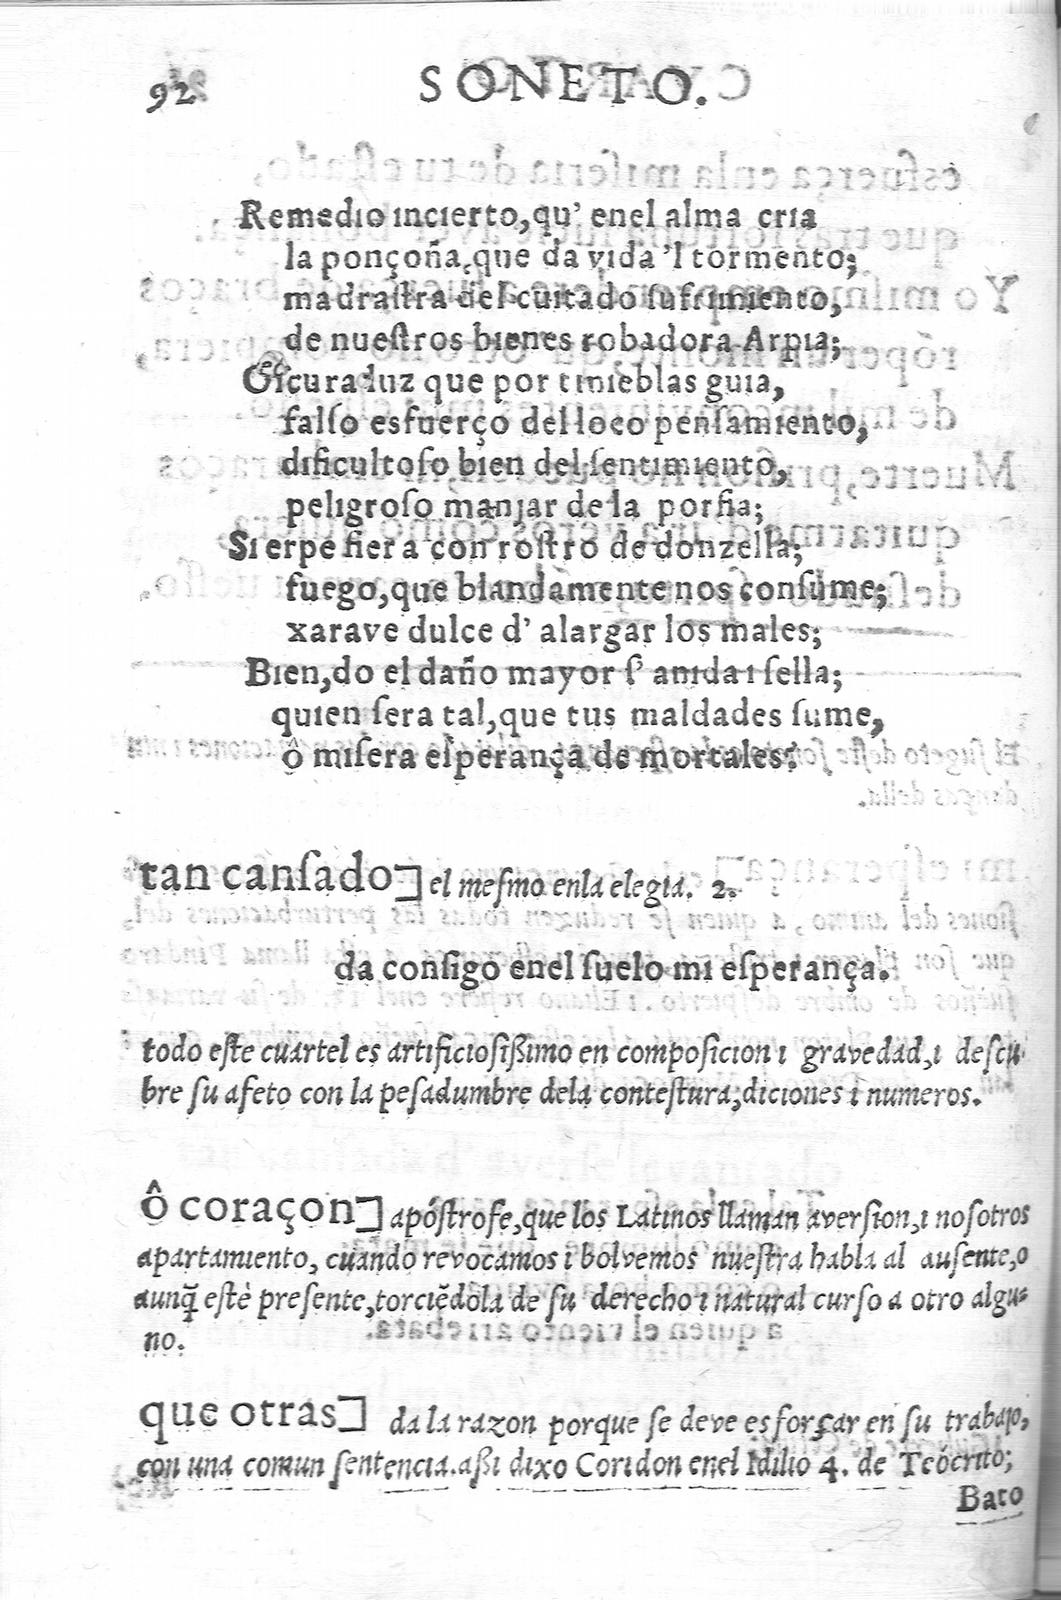 92 SONETO.
Remedio incierto, qu' enel alma cria
la ponçoña, que da vida 'l tormento;
madraſtra del cuitado ſufrimiento,
de nueſtros bienes robadora Arpia;
Oſcura luz que por tinieblas guia,
falſo esfuerço del loco penſamiento,
dificultoſo bien del ſentimiento,
peligroſo manjar de la porfia;
Sierpe fiera con roſtro de donzella;
fuego, que blandamente nos conſume;
xarave dulce d' alargar los males;
Bien, do el daño mayor ſ' anida i ſella;
quien ſera tal, que tus maldades ſume,
ô miſera eſperança de mortales?
tan canſado] el meſmo enla elegia. 2.
da conſigo enel ſuelo mi eſperança.
todo eſte cuartel es artificioſißimo en compoſicion i gravedad, i deſcu
bre ſu afeto con la peſadumbre dela conteſtura, diciones i numeros.
ô coraçon] apóſtrofe, que los Latinos llaman averſion, i noſotros
apartamiento, cuando revocamos i bolvemos nueſtra habla al auſente, o
aunq̃ eſtè preſente, torciẽdola de ſu derecho i natural curſo a otro algu-
no.
que otras] da la razon porque ſe deve esforçar en ſu trabajo,
con una comun ſentencia. aßi dixo Coridon enel Idilio 4. de Teócrito;
Bato